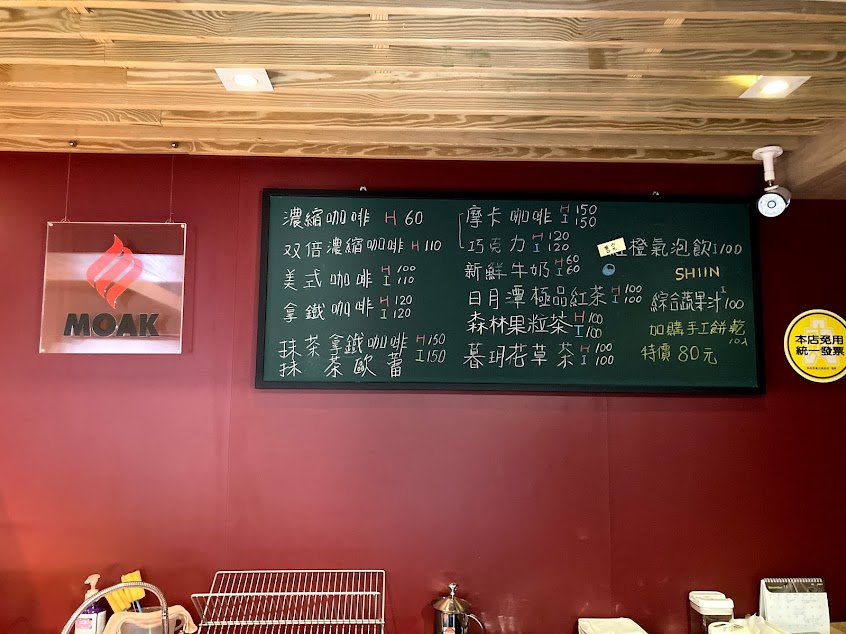 MOAK
濃縮咖啡 H 60
双倍濃縮咖啡 H 110
美式咖啡 H 100 I 110
拿鐵咖啡 H 120 I 120
抹茶拿鐵咖啡 H 150
抹茶歐蕾 I 150
摩卡咖啡 H 150 I 150
巧克力 H 120 I 120
新鮮牛奶 H 60 I 60
日月潭極品紅茶 H 100 I 100
森林果粒茶 H 100 I 100
暮玥花草茶 H 100 I 100
售完
橙氣泡飲 I 100
SHIIN
綜合蔬果汁 I 100
加購手工餅乾
特價 80元
本店免用
統一發票